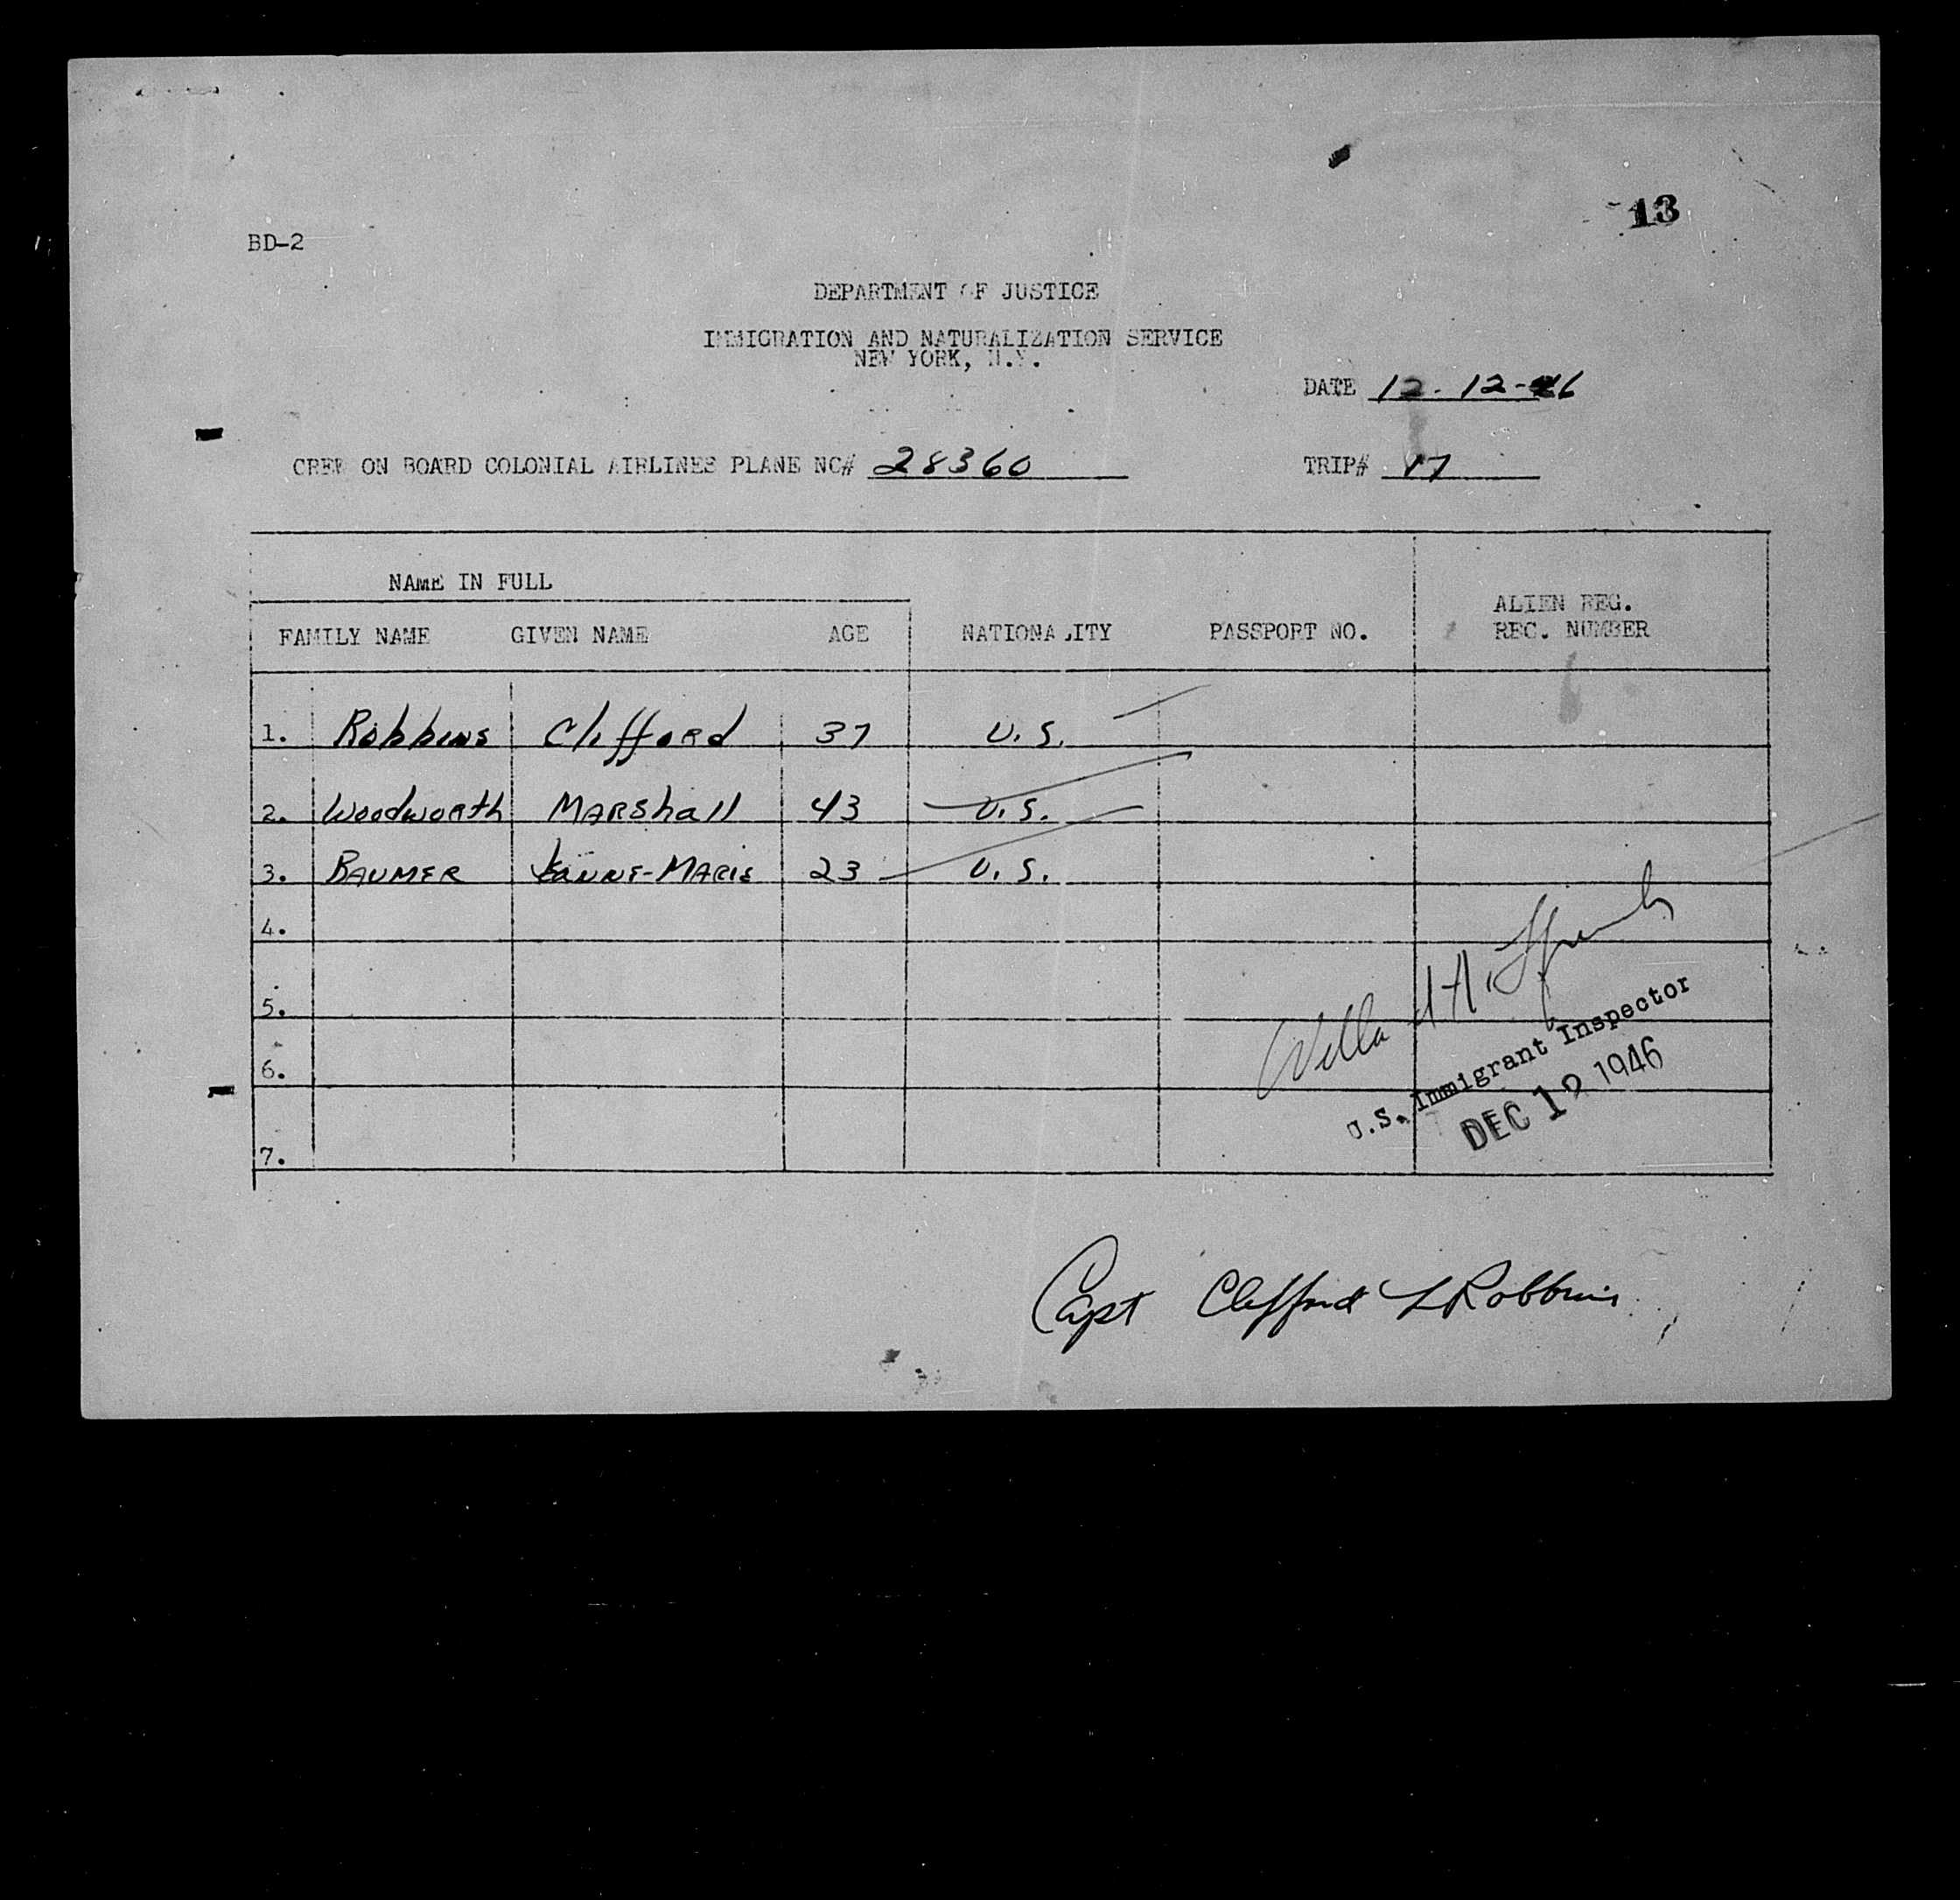 13
BD-2
DEPARTMENT OF JUSTICE
IMMIGRATION AND NATURALIZATION SERVICE
NEW YORK, N.Y.
DATE 12-12-46
CREW ON BOARD COLONIAL AIRLINES PLANE NC# 28360 TRIP# 17
NAME IN FULL
FAMILY NAME GIVEN NAME AGE NATIONALITY PASSPORT NO. ALIEN REG. REC. NUMBER
1. Robbins Clifford 37 U.S.
2. Woodworth Marshall 43 U.S.
3. BAUMER -MARIE 23 U.S.
4.
5.
6.
7.
U.S. Immigrant Inspector
DEC 12 1946
Capt Clifford L Robbins